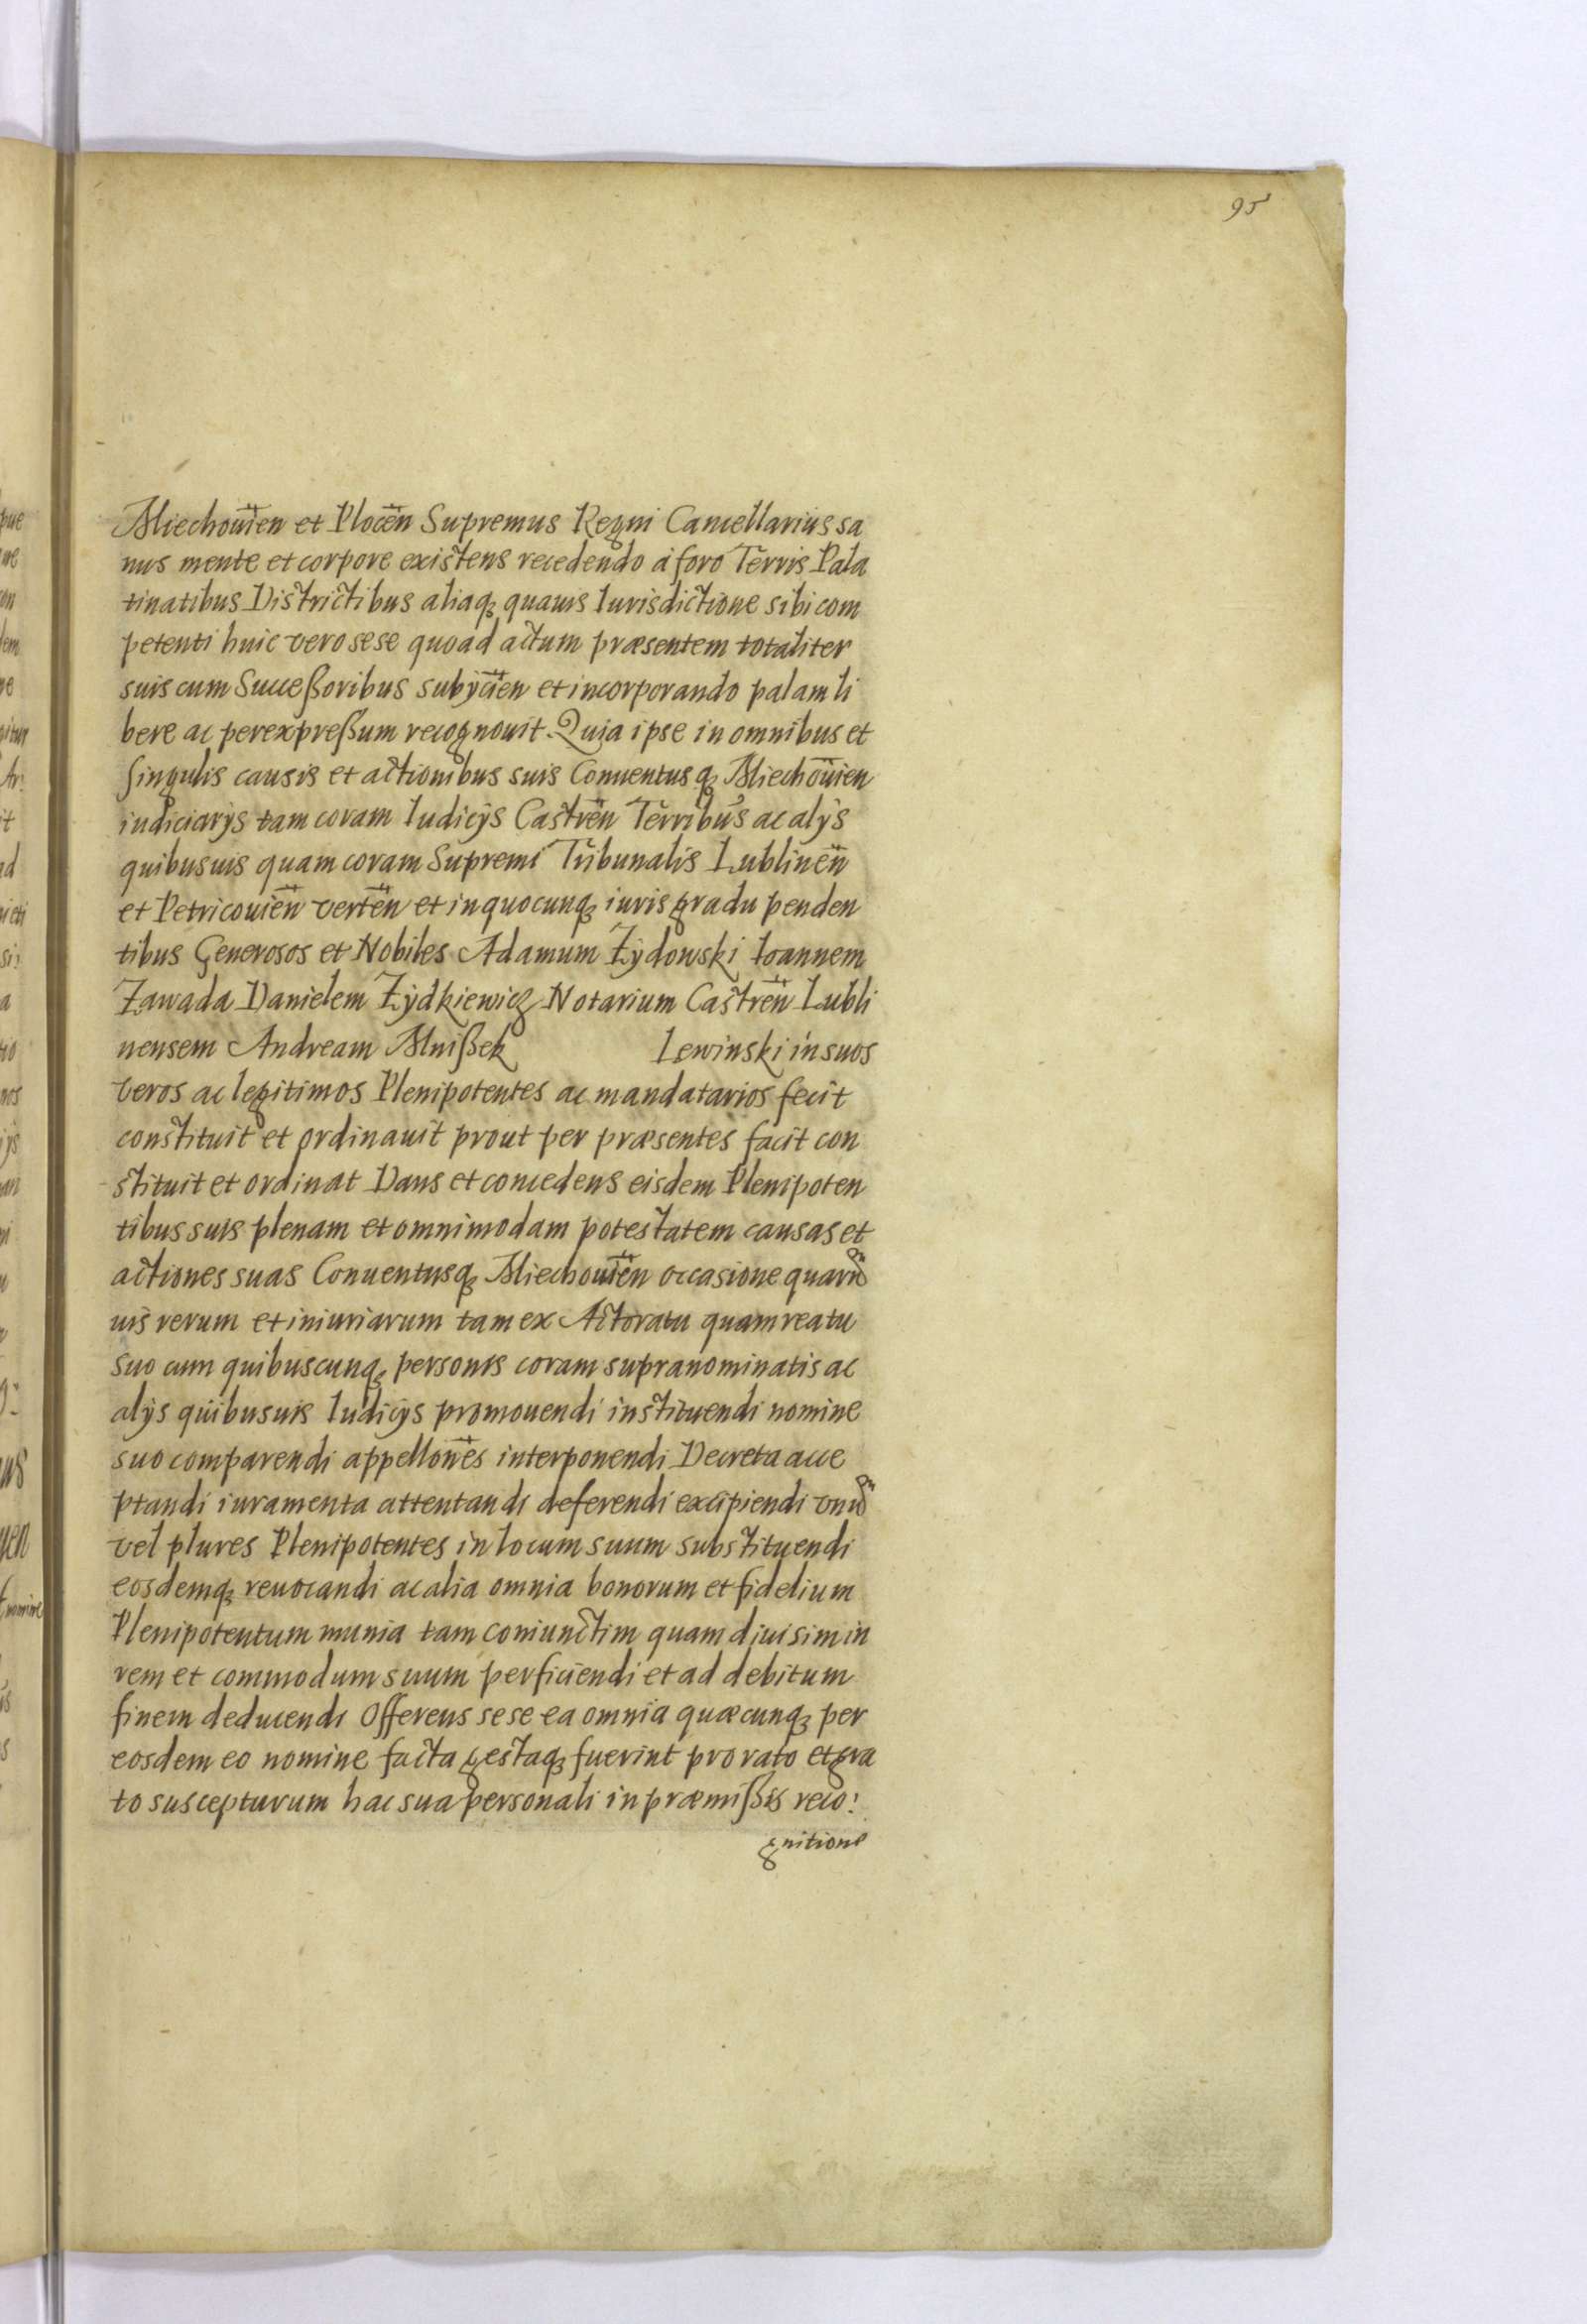 95
Miechouien et Plocen Supremus Regni Cancellarius sa
nus mente et corpore existens recedendo á foro Terris Pala
tinatibus Districtibus aliaq quauis Iurisdictione sibi com
petenti huic vero sese quoad actum præsentem totaliter
suis cum Succeßoribus subÿcien et incorporando palam li
bere ac per expreßum recognouit. Quia ipse in omnibus et
singulis causis et actionibus suis Conuentusq Miechouien
iudiciarÿs tam coram Iudicÿs Castren Terribus ac alÿs
quibusuis quam coram Supremi Tribunalis Lublinen
et Petricouien verten et in quocunq iuris gradu penden
tibus Generosos et Nobiles Adamum Zÿdowski Ioannem
Zawada Danielem Zÿdkiewicz Notarium Castren Lubli
nensem Andream Mnißek Lewinski in suos
veros ac legitimos Plenipotentes ac mandatarios fecit
constituit et ordinauit prout per præsentes facit con
stituit et ordinat Dans et concedens eisdem Plenipoten
tibus suis plenam et omnimodam potestatem causas et
actiones suas Conuentusq Miechouien occasione quarū
uis rerum et iniuriarum tam ex Actoratu quam reatu
suo cum quibuscunq personis coram supranominatis ac
alÿs quibusuis Iudicÿs promouendi instituendi nomine
suo comparendi appellones interponendi Decreta acce
ptandi iuramenta attentandi deferendi excipiendi vnū
vel plures Plenipotentes in locum suum substituendi
eosdemq reuocandi ac alia omnia bonorum et fidelium
Plenipotentum munia tam coniunctim quam diuisim in
rem et commodum suum perficiendi et ad debitum
finem deducendi Offerens sese ea omnia quæcunq per
eosdem eo nomine facta gestaq fuerint pro rato et gra
to suscepturum hac sua personali in præmißis reco:
gnitione